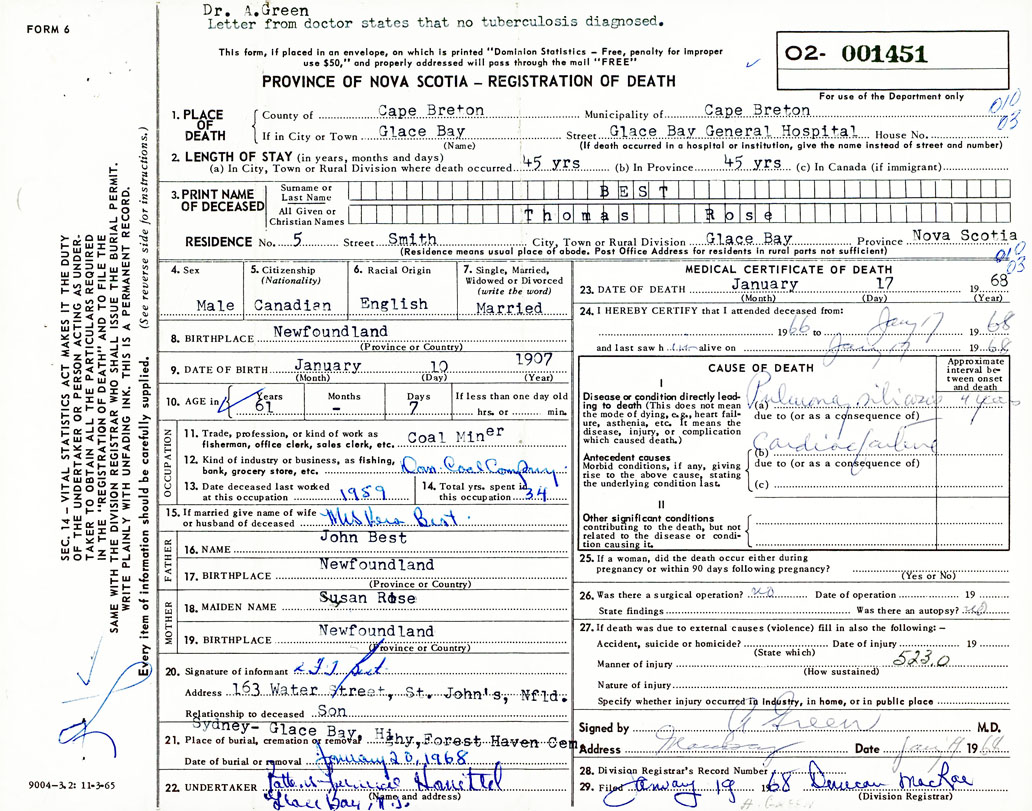 Dr. A.Green
Letter from doctor states that no tuberculosis diagnosed.
FORM 6
This form, if placed in an envelope, on which is printed "Dominion Statistics – Free, penalty for improper
use $50," and properly addressed will pass through the mail "FREE"
PROVINCE OF NOVA SCOTIA – REGISTRATION OF DEATH
O2- 001451
For use of the Department only
010
03
1. PLACE OF DEATH
County of Cape Breton Municipality of Cape Breton
If in City or Town Glace Bay Street Glace Bay General Hospital House No.
(Name) (If death occurred in a hospital or institution, give the name instead of street and number)
2. LENGTH OF STAY (in years, months and days)
(a) In City, Town or Rural Division where death occurred 45 yrs (b) In Province 45 yrs (c) In Canada (if immigrant)
3. PRINT NAME OF DECEASED
Surname or Last Name BEST
All Given or Christian Names Thomas Rose
RESIDENCE No. 5 Street Smith City, Town or Rural Division Glace Bay Province Nova Scotia
(Residence means usual place of abode. Post Office Address for residents in rural parts not sufficient)
010
03
4. Sex
Male
5. Citizenship
(Nationality)
Canadian
6. Racial Origin
English
7. Single, Married,
Widowed or Divorced
(write the word)
Married
8. BIRTHPLACE Newfoundland
(Province or Country)
9. DATE OF BIRTH January 10 1907
(Month) (Day) (Year)
10. AGE in
Years Months Days If less than one day old
61 – 7 hrs. or min.
OCCUPATION
11. Trade, profession, or kind of work as
fisherman, office clerk, sales clerk, etc. Coal Miner
12. Kind of industry or business, as fishing,
bank, grocery store, etc. Dom. Coal Company
13. Date deceased last worked
at this occupation 1959
14. Total yrs. spent in
this occupation 34
15. If married give name of wife
or husband of deceased Mrs Vera Best
FATHER
16. NAME John Best
17. BIRTHPLACE Newfoundland
(Province or Country)
MOTHER
18. MAIDEN NAME Susan Rose
19. BIRTHPLACE Newfoundland
(Province or Country)
20. Signature of informant Best
Address 163 Water Street, St. John's, Nfld.
Relationship to deceased Son
21. Place of burial, cremation or removal Sydney- Glace Bay, Hihy,Forest Haven Cem
Date of burial or removal January 20, 1968
22. UNDERTAKER
Glace Bay, N.S.
(Name and address)
MEDICAL CERTIFICATE OF DEATH
23. DATE OF DEATH January 17 19 68
(Month) (Day) (Year)
24. I HEREBY CERTIFY that I attended deceased from:
1966 to Jan 17 19 68
and last saw h im alive on Jan 17 19 68
CAUSE OF DEATH
Approximate
interval be-
tween onset
and death
I
Disease or condition directly lead-
ing to death (This does not mean
the mode of dying, e.g., heart fail-
ure, asthenia, etc. It means the
disease, injury, or complication
which caused death.)
(a) Pulmonary silicosis 4 years
due to (or as a consequence of)
Antecedent causes
Morbid conditions, if any, giving
rise to the above cause, stating
the underlying condition last.
(b) Cardiac failure
due to (or as a consequence of)
(c)
II
Other significant conditions
contributing to the death, but not
related to the disease or condi-
tion causing it.
25. If a woman, did the death occur either during
pregnancy or within 90 days following pregnancy?
(Yes or No)
26. Was there a surgical operation? no Date of operation 19
State findings Was there an autopsy? no
27. If death was due to external causes (violence) fill in also the following: –
Accident, suicide or homicide? Date of injury 19
(State which)
Manner of injury 523.0
(How sustained)
Nature of injury
Specify whether injury occurred in Industry, in home, or in public place
Signed by A Green M.D.
Address Date Jan 19 1968
28. Division Registrar's Record Number
29. Filed January 19 1968 Duncan MacRae
(Division Registrar)
SEC. 14 – VITAL STATISTICS ACT MAKES IT THE DUTY
OF THE UNDERTAKER OR PERSON ACTING AS UNDER-
TAKER TO OBTAIN ALL THE PARTICULARS REQUIRED
IN THE "REGISTRATION OF DEATH" AND TO FILE THE
SAME WITH THE DIVISION REGISTRAR WHO SHALL ISSUE THE BURIAL PERMIT.
WRITE PLAINLY WITH UNFADING INK. THIS IS A PERMANENT RECORD.
Every item of information should be carefully supplied. (See reverse side for instructions.)
9004-3.2: 11-3-65